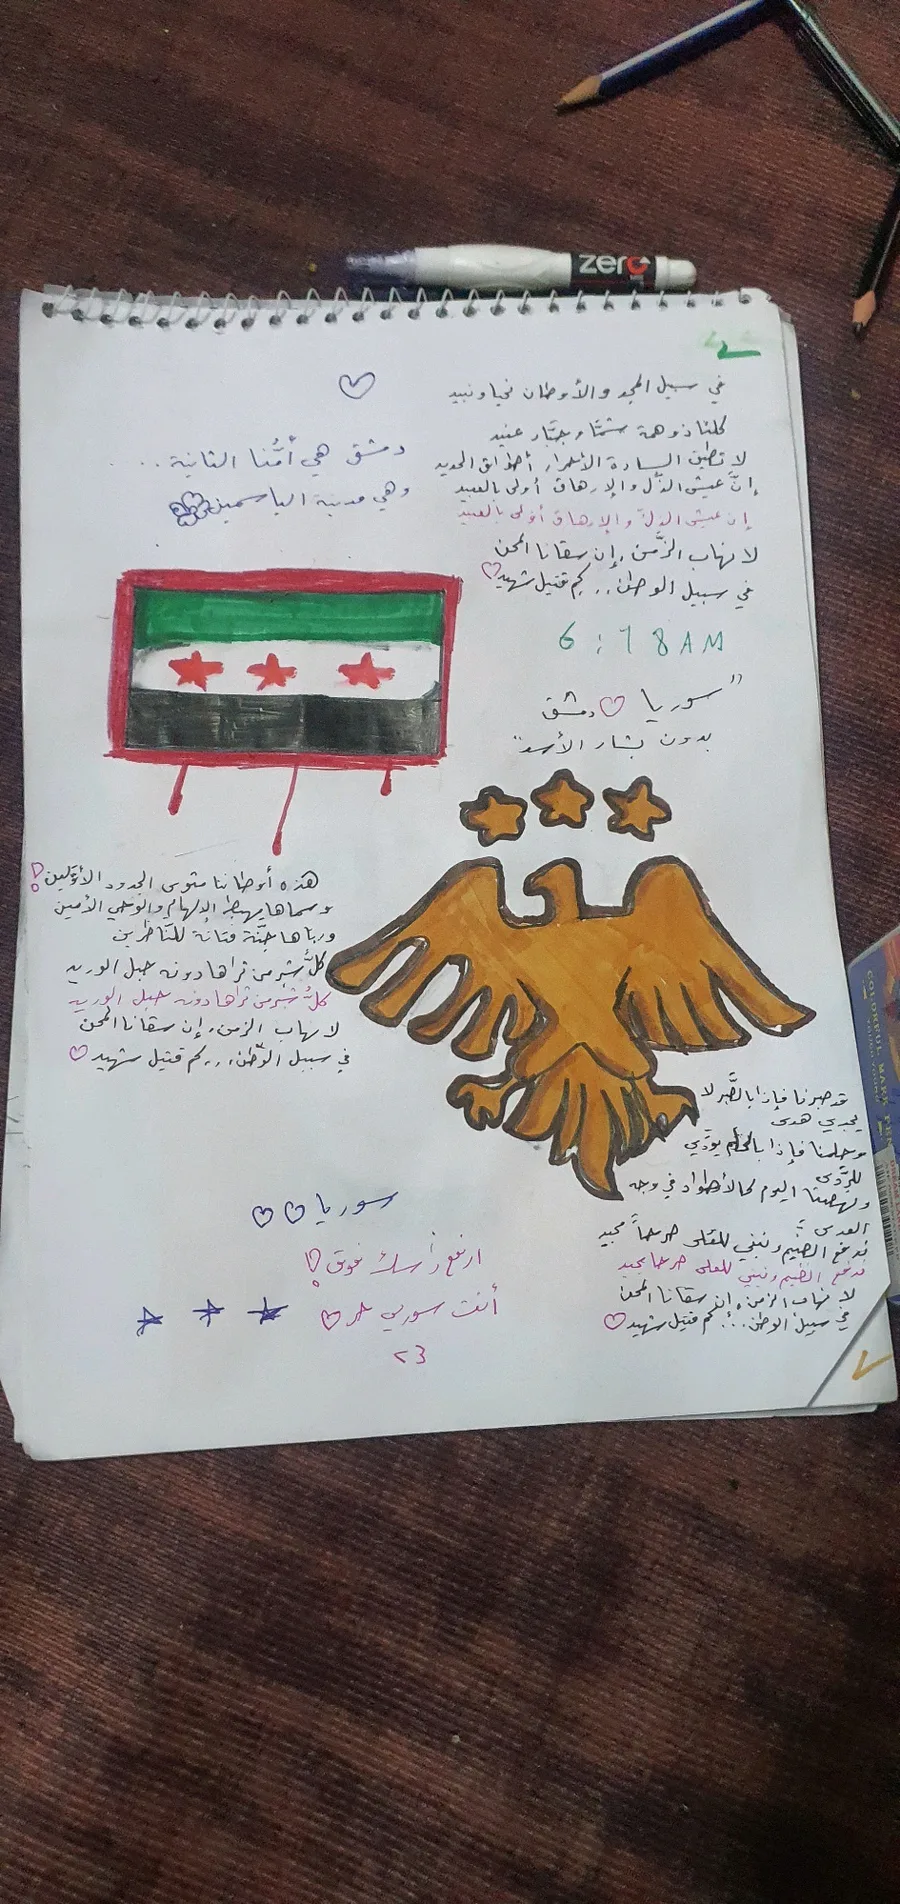 zero
في سبيل المجد والأوطان نحيا ونبيد
كلنا ذو همة شمّاء وجبّار عنيد
لا تطيق السادة الأحرار أطواق الحديد
إنَّ عيش الذّل والإرهاق أولى بالعبيد
إن عيش الذلّ والإرهاق أولى بالعبيد
لا نهاب الزّمن، إن سقانا المحن
في سبيل الوطن.. كم قتيل شهيد
6:18 AM
"سوريا دمشق
بدون بشار الأسد"
دمشق هي أمُّنا الثانية...
وهي مدينة الياسمين
هذه أوطاننا مثوى الجدود الأوّلين
وسماها يهبط الإلهام والوحي الأمين
ورباها جنَّة فتانة للنّاظرين
كلُّ شبر من ثراها دونه حبل الوريد
كلُّ شبر من ثراها دونه حبل الوريد
لا نهاب الزمن، إن سقانا المحن
في سبيل الوطن... كم قتيل شهيد
قد صبرنا فإذا بالصَّبر لا
يجدي هدى
وحلمنا فإذا بالحلم يؤدّي
للرَّدى
ونهضنا اليوم كالأطواد في وجه
العدى
ندفع الضّيم ونبني للعلى صرحاً مجيد
ندفع الضّيم ونبني للعلى صرحا مجيد
لا نهاب الزمن، إن سقانا المحن
في سبيل الوطن... كم قتيل شهيد
سوريا
ارفع رأسك فوق!
أنت سوري حر
٢3
COLORFUL MARK PEN